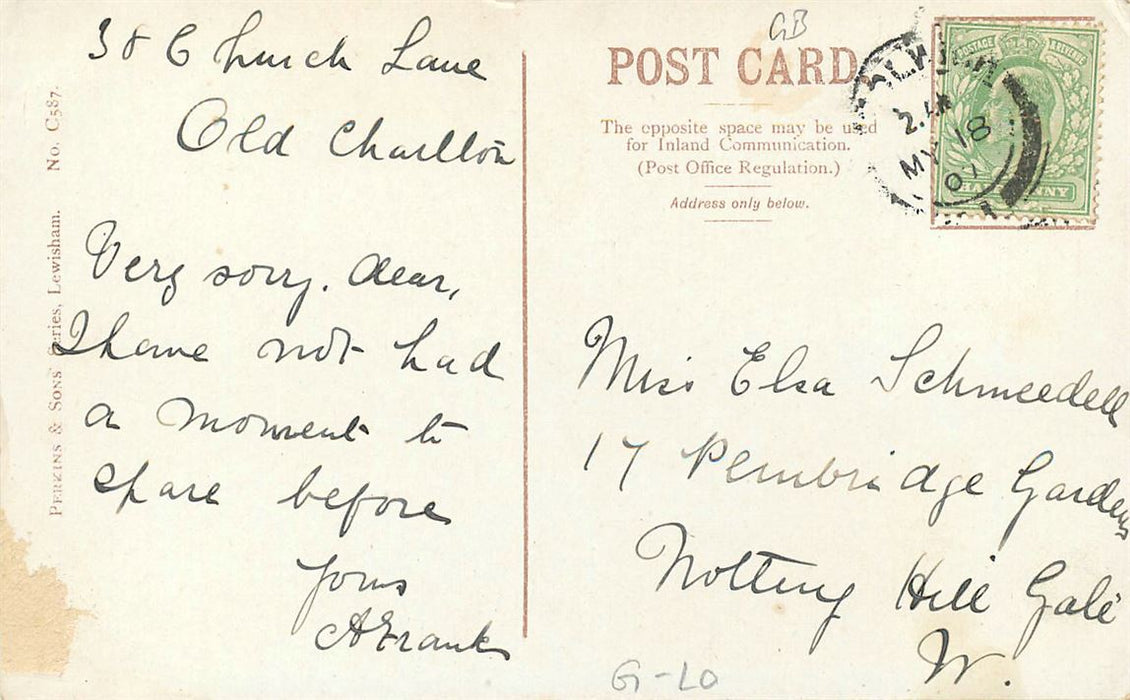 38 Church Lane
Old Charlton
Very sorry. dear,
I have not had
a moment to
spare before
Yours
A Frank
PERKINS & SONS Series, Lewisham. No. C587.
GB
POST CARD
The opposite space may be used
for Inland Communication.
(Post Office Regulation.)
Address only below.
POSTAGE REVENUE
HALFPENNY
MY 18
07
Miss Elsa Schmeedell
17 Pembridge Gardens
Notting Hill Gate
W.
G-LO